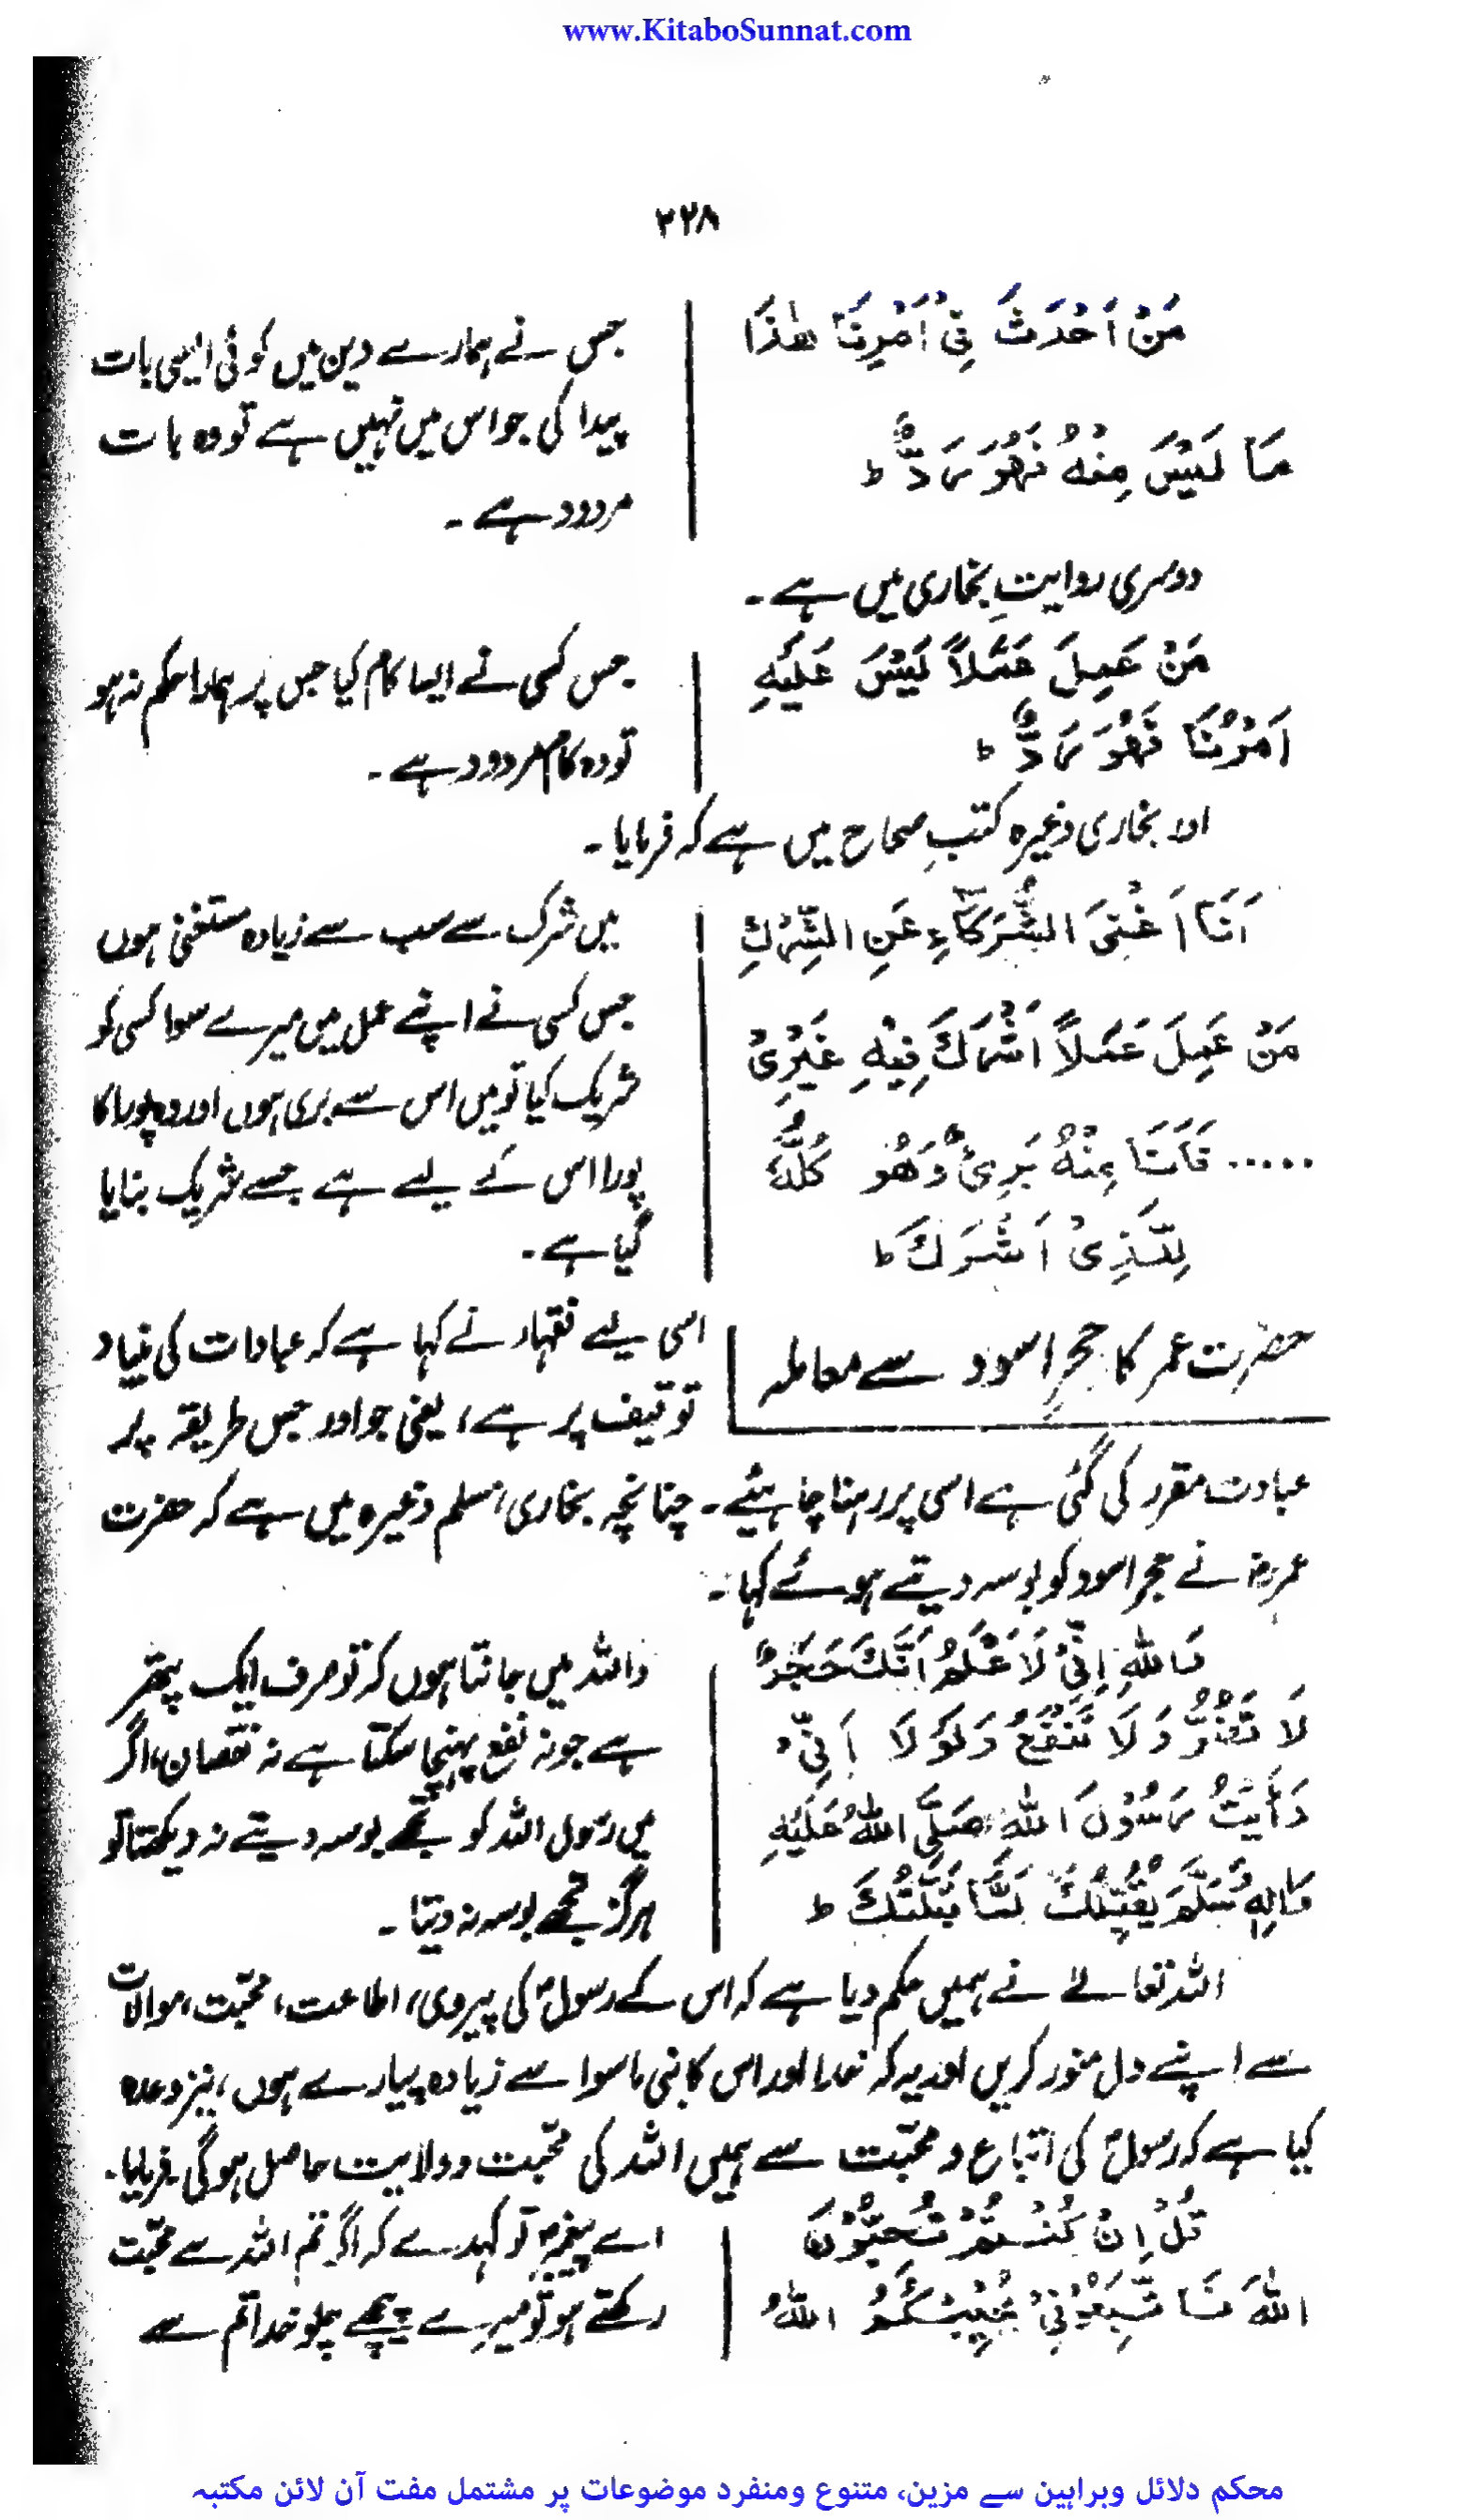 www.KitaboSunnat.com
۲۲۸
مَنْ اَحْدَثَ فِیْ اَمْرِنَا هٰذَا
مَا لَیْسَ مِنْهُ فَهُوَ رَدٌّ ط
جس نے ہمارے دین میں کوئی ایسی بات
پیدا کی جو اس میں نہیں ہے تو وہ بات
مردود ہے ۔
دوسری روایتِ بخاری میں ہے ۔
مَنْ عَمِلَ عَمَلاً لَیْسَ عَلَیْهِ
اَمْرُنَا فَهُوَ رَدٌّ ط
جس کسی نے ایسا کام کیا جس پر ہمارا حکم نہ ہو
تو وہ کام مردود ہے ۔
اور بخاری وغیرہ کتبِ صحاح میں ہے کہ فرمایا ۔
اَنَا اَغْنَی الشُّرَکَآءِ عَنِ الشِّرْكِ
مَنْ عَمِلَ عَمَلاً اَشْرَكَ فِیْهِ غَیْرِیْ
..... فَاَنَا مِنْهُ بَرِیْءٌ وَهُوَ کُلُّهٗ
لِلَّذِیْ اَشْرَكَ ط
میں شرک سے سب سے زیادہ مستغنی ہوں
جس کسی نے اپنے عمل میں میرے سوا کسی کو
شریک کیا تو میں اس سے بری ہوں اور وہ پورا کا
پورا اس کے لیے ہے جسے شریک بنایا
گیا ہے ۔
حضرت عمر کا حجرِ اسود سے معاملہ
اسی لیے فقہاء نے کہا ہے کہ عبادات کی بنیاد
توقیف پر ہے، یعنی جو اور جس طریقہ پر
عبادت مقرر کی گئی ہے اسی پر رہنا چاہیئے ۔ چنانچہ بخاری، مسلم وغیرہ میں ہے کہ حضرت
عمرؓ نے حجرِ اسود کو بوسہ دیتے ہوئے کہا ۔
وَاللّٰهِ اِنِّیْ لَاَعْلَمُ اَنَّكَ حَجَرٌ
لَا تَضُرُّ وَلَا تَنْفَعُ وَلَوْلَا اَنِّیْ
رَأَیْتُ رَسُوْلَ اللّٰهِ صَلَّی اللّٰهُ عَلَیْهِ
وَاٰلِهٖ وَسَلَّمَ یُقَبِّلُكَ لَمَا قَبَّلْتُكَ ط
واللہ میں جانتا ہوں کہ تو صرف ایک پتھر
ہے جو نہ نفع پہنچا سکتا ہے نہ نقصان، اگر
میں رسول اللہ کو تجھے بوسہ دیتے نہ دیکھتا تو
ہرگز تجھے بوسہ نہ دیتا ۔
اللہ تعالےٰ نے ہمیں حکم دیا ہے کہ اس کے رسولؐ کی پیروی، اطاعت، محبّت، موالات
سے اپنے دل منور کریں اور یہ کہ خدا اور اس کا نبی ماسوا سے زیادہ پیارے ہوں، نیز وعدہ
کیا ہے کہ رسولؐ کی اتباع و محبّت سے ہمیں اللہ کی محبّت و ولایت حاصل ہوگی فرمایا ۔
قُلْ اِنْ کُنْتُمْ تُحِبُّوْنَ
اللّٰهَ فَاتَّبِعُوْنِیْ یُحْبِبْکُمُ اللّٰهُ
اے پیغمبر تو کہدے کہ اگر تم اللہ سے محبّت
رکھتے ہو تو میرے پیچھے چلو خدا تم سے
محکم دلائل وبراہین سے مزین، متنوع ومنفرد موضوعات پر مشتمل مفت آن لائن مکتبہ